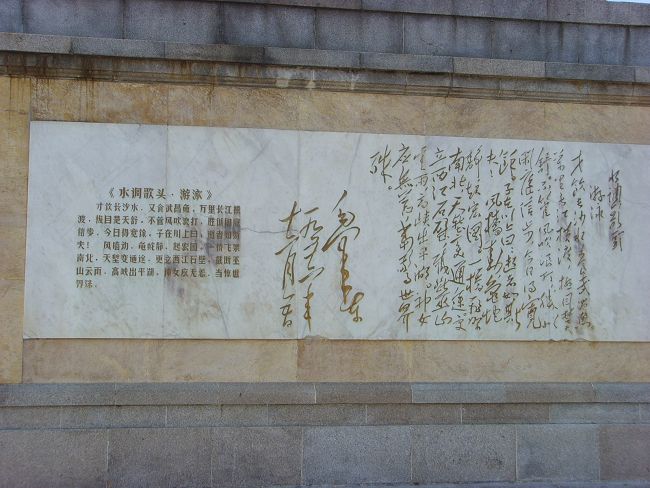 《水调歌头·游泳》
才饮长沙水，又食武昌鱼，万里长江横
渡，极目楚天舒，不管风吹浪打，胜似闲庭
信步，今日得宽馀，子在川上曰：逝者如斯
夫！ 风樯动，龟蛇静，起宏图，一桥飞架
南北，天堑变通途，更立西江石壁，截断巫
山云雨，高峡出平湖，神女应无恙，当惊世
界殊。
水调歌头
游泳
才饮长沙水又食武昌鱼
万里长江横渡极目楚天
舒不管风吹浪打胜似
闲庭信步今日得宽
馀子在川上曰逝者如斯
夫风樯动龟蛇
静起宏图一桥飞架
南北天堑变通途更
立西江石壁截断巫山
云雨高峡出平湖神女
应无恙当惊世界
殊。
毛泽东
一九五六年
十二月五日